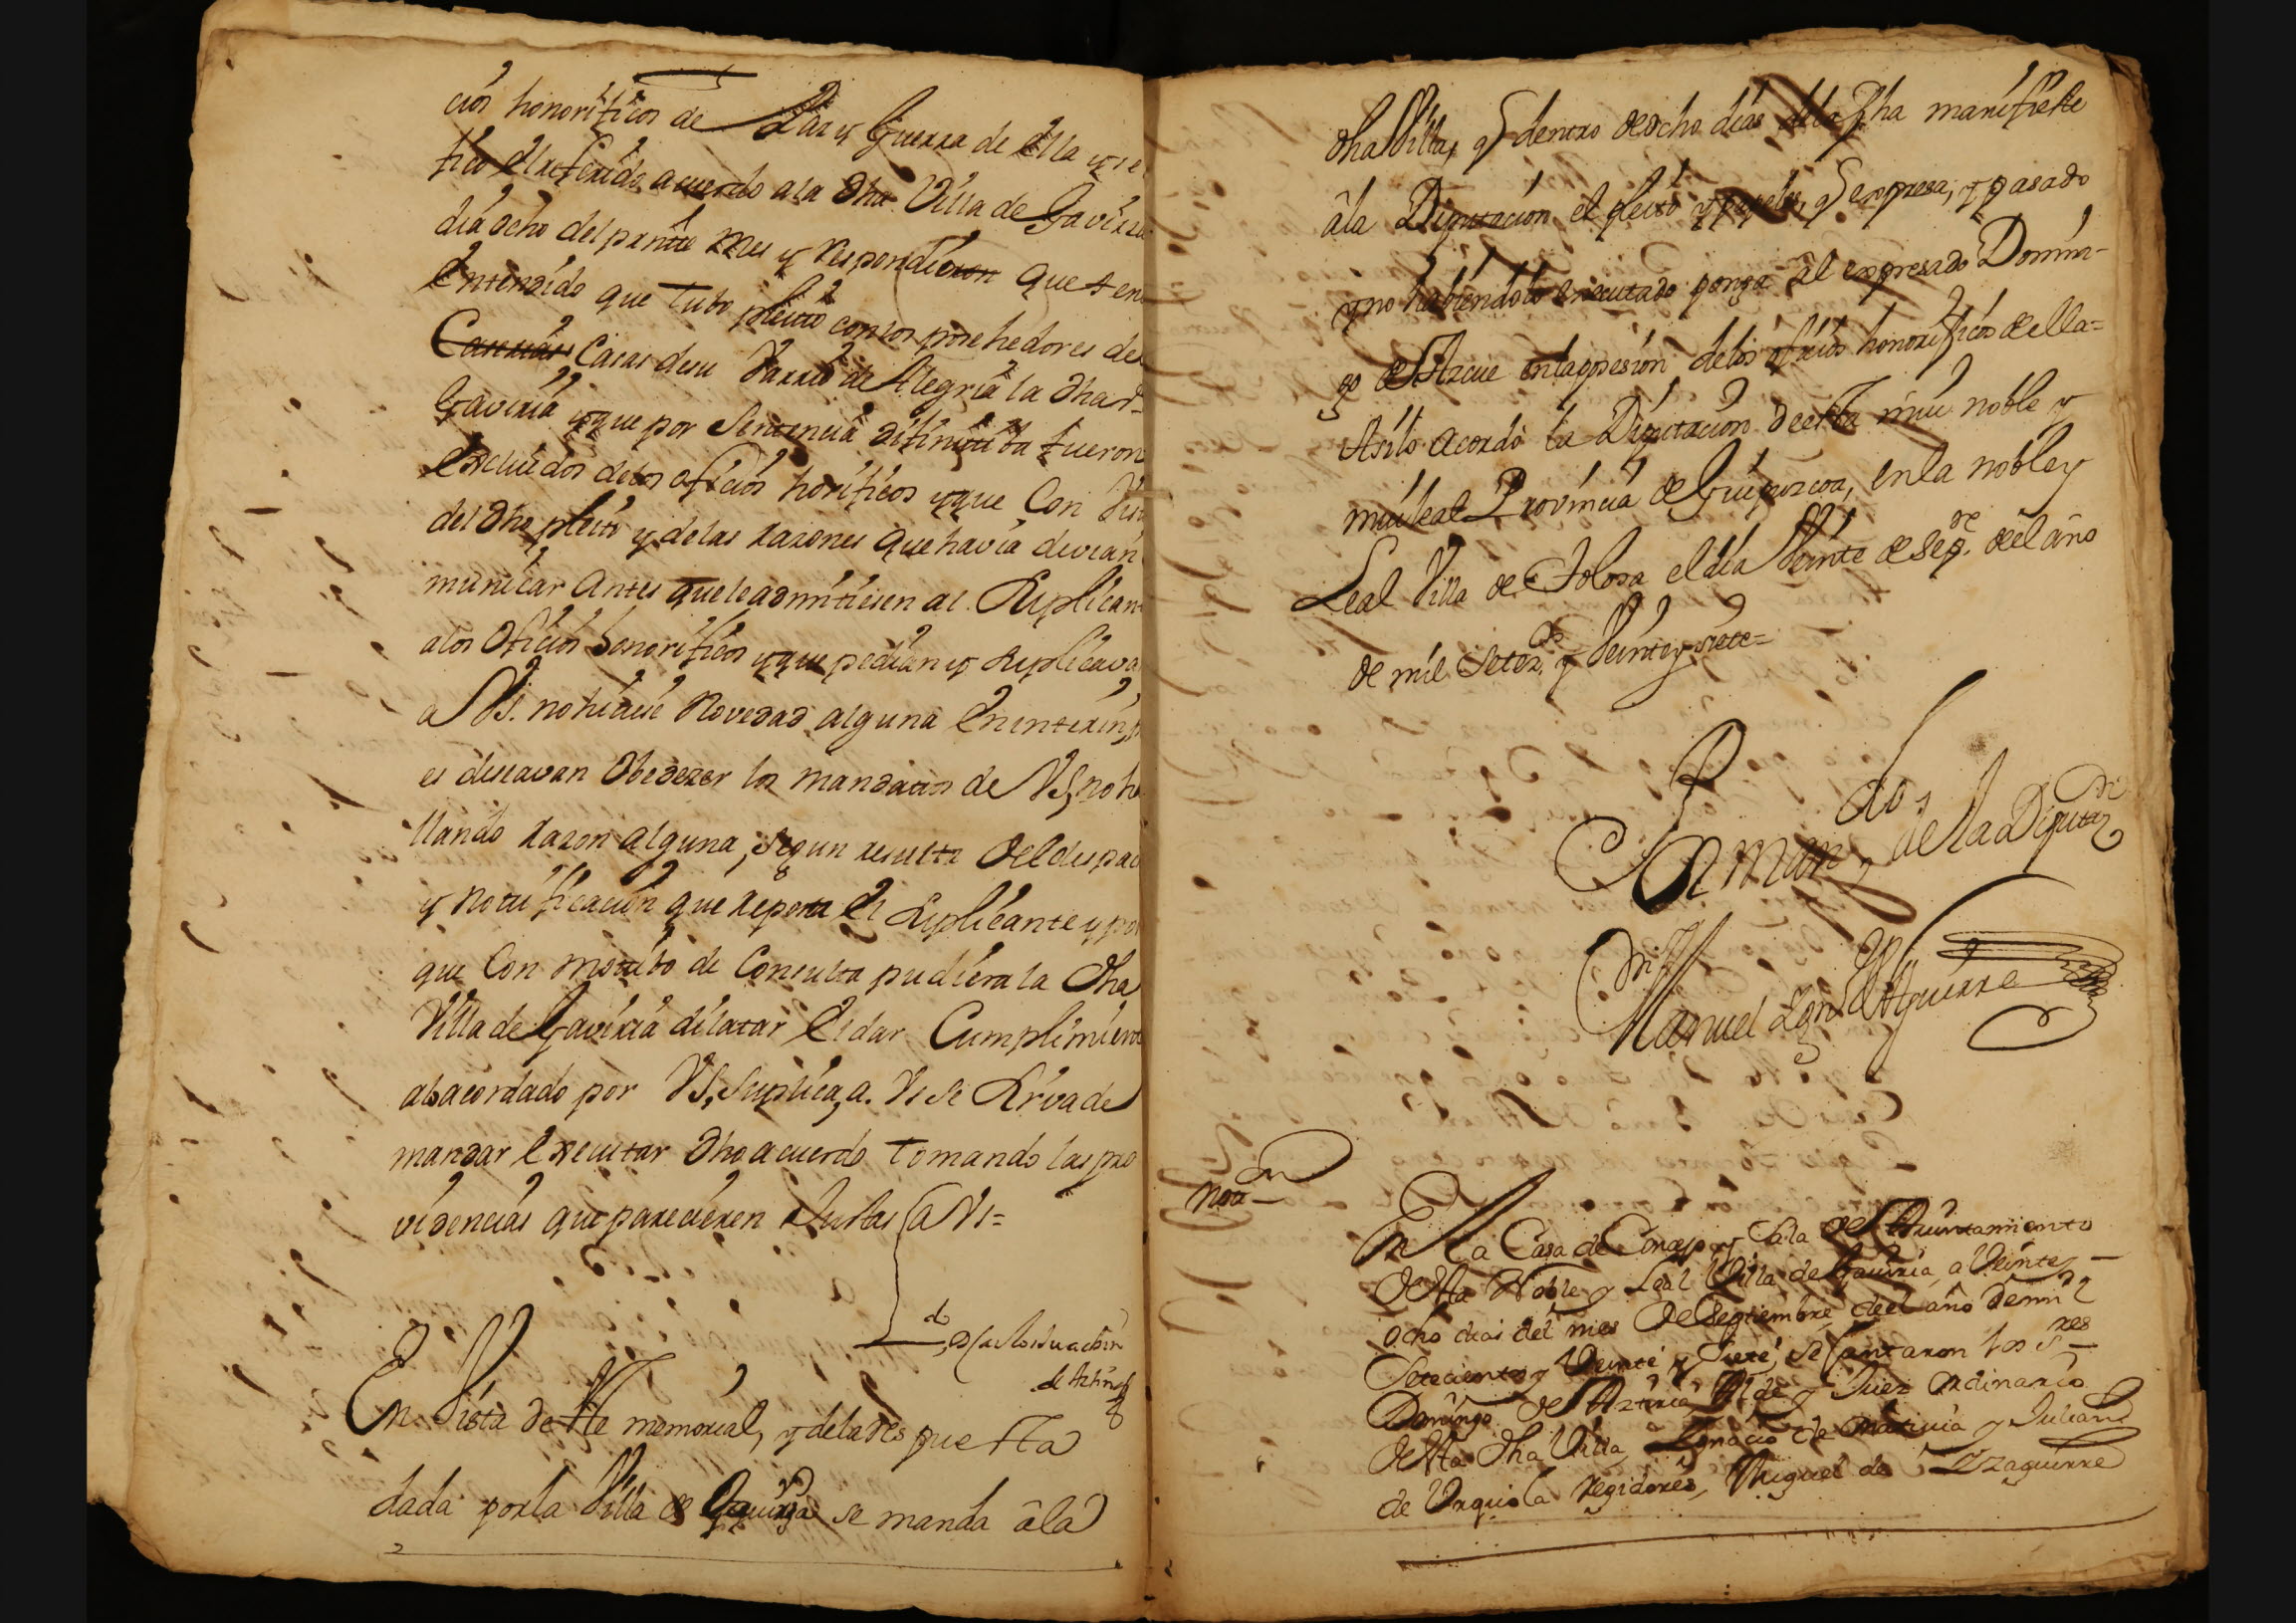 cios honorificos de Paz y Guerra de ella y se
fico el referido acuerdo a la dha Villa de Gaviria
dia ocho del presnte mes y respondieron que ten
entendido que tubo pleito con los posehedores de
Casas de su Varrio de Alegria la dha d
Gaviria y que por Sentencia difinitiba fueron
excluidos de los oficios horificos y que Con Vist
del dho pleito y de las razones que havia devian
municar antes que le admitiesen al Suplican
a los Oficios honorificos y que pedian y suplicava
a VS. no hiciese Novedad alguna en interin, p
es deseavan Obedezer los mandatos de VS, no ha
llando razon alguna, segun resulta del despac
y notificacion que reporta el Suplicante y por
que Con motibo de Consulta pudiera la dha
Villa de Gaviria dilatar el dar Cumplimiento
alo acordado por VS, Suplica, a. Vs se sirva de
mandar executar dho acuerdo tomando las pro
videncias que parecieren Justas a Vs=
En Vista de este memorial, y dela respuesta
dada por la Villa de Gaviria se manda â la
dha Villa, q dentro de ocho dias de la fha manifieste
â la Diputacion el pleito y papeles, q expresa, y pasado
y no habiendolo executado ponga âl expresado Domin-
go de Azcue en la posesion de los oficios honorificos de ella=
Asi lo acordò la Diputacion de esta mui noble y
mui leal Provincia de Guipuzcoa, en la noble y
Leal Villa de Tolosa el dia Veinte de Sep.re de el año
de mil Setez.os y Veinte y siete=
Por mandado de la Diputaz.on
Manuel Ign.o de Aguirre
noon
En la Casa de Concejo y Sala de el Ayuntamiento
de esta Noble y Leal Villa de Gaviria, a Veinte y
ocho dias del mes de Septiembre de el año de mil
Setecientos y Veinte y Siete, se juntaron los S.res
Domingo de Azteria Alde y Juez ordinario
de esta dha Villa, Ignacio de y Julian
de Urquiola regidores, Miguel de Yzaguirre